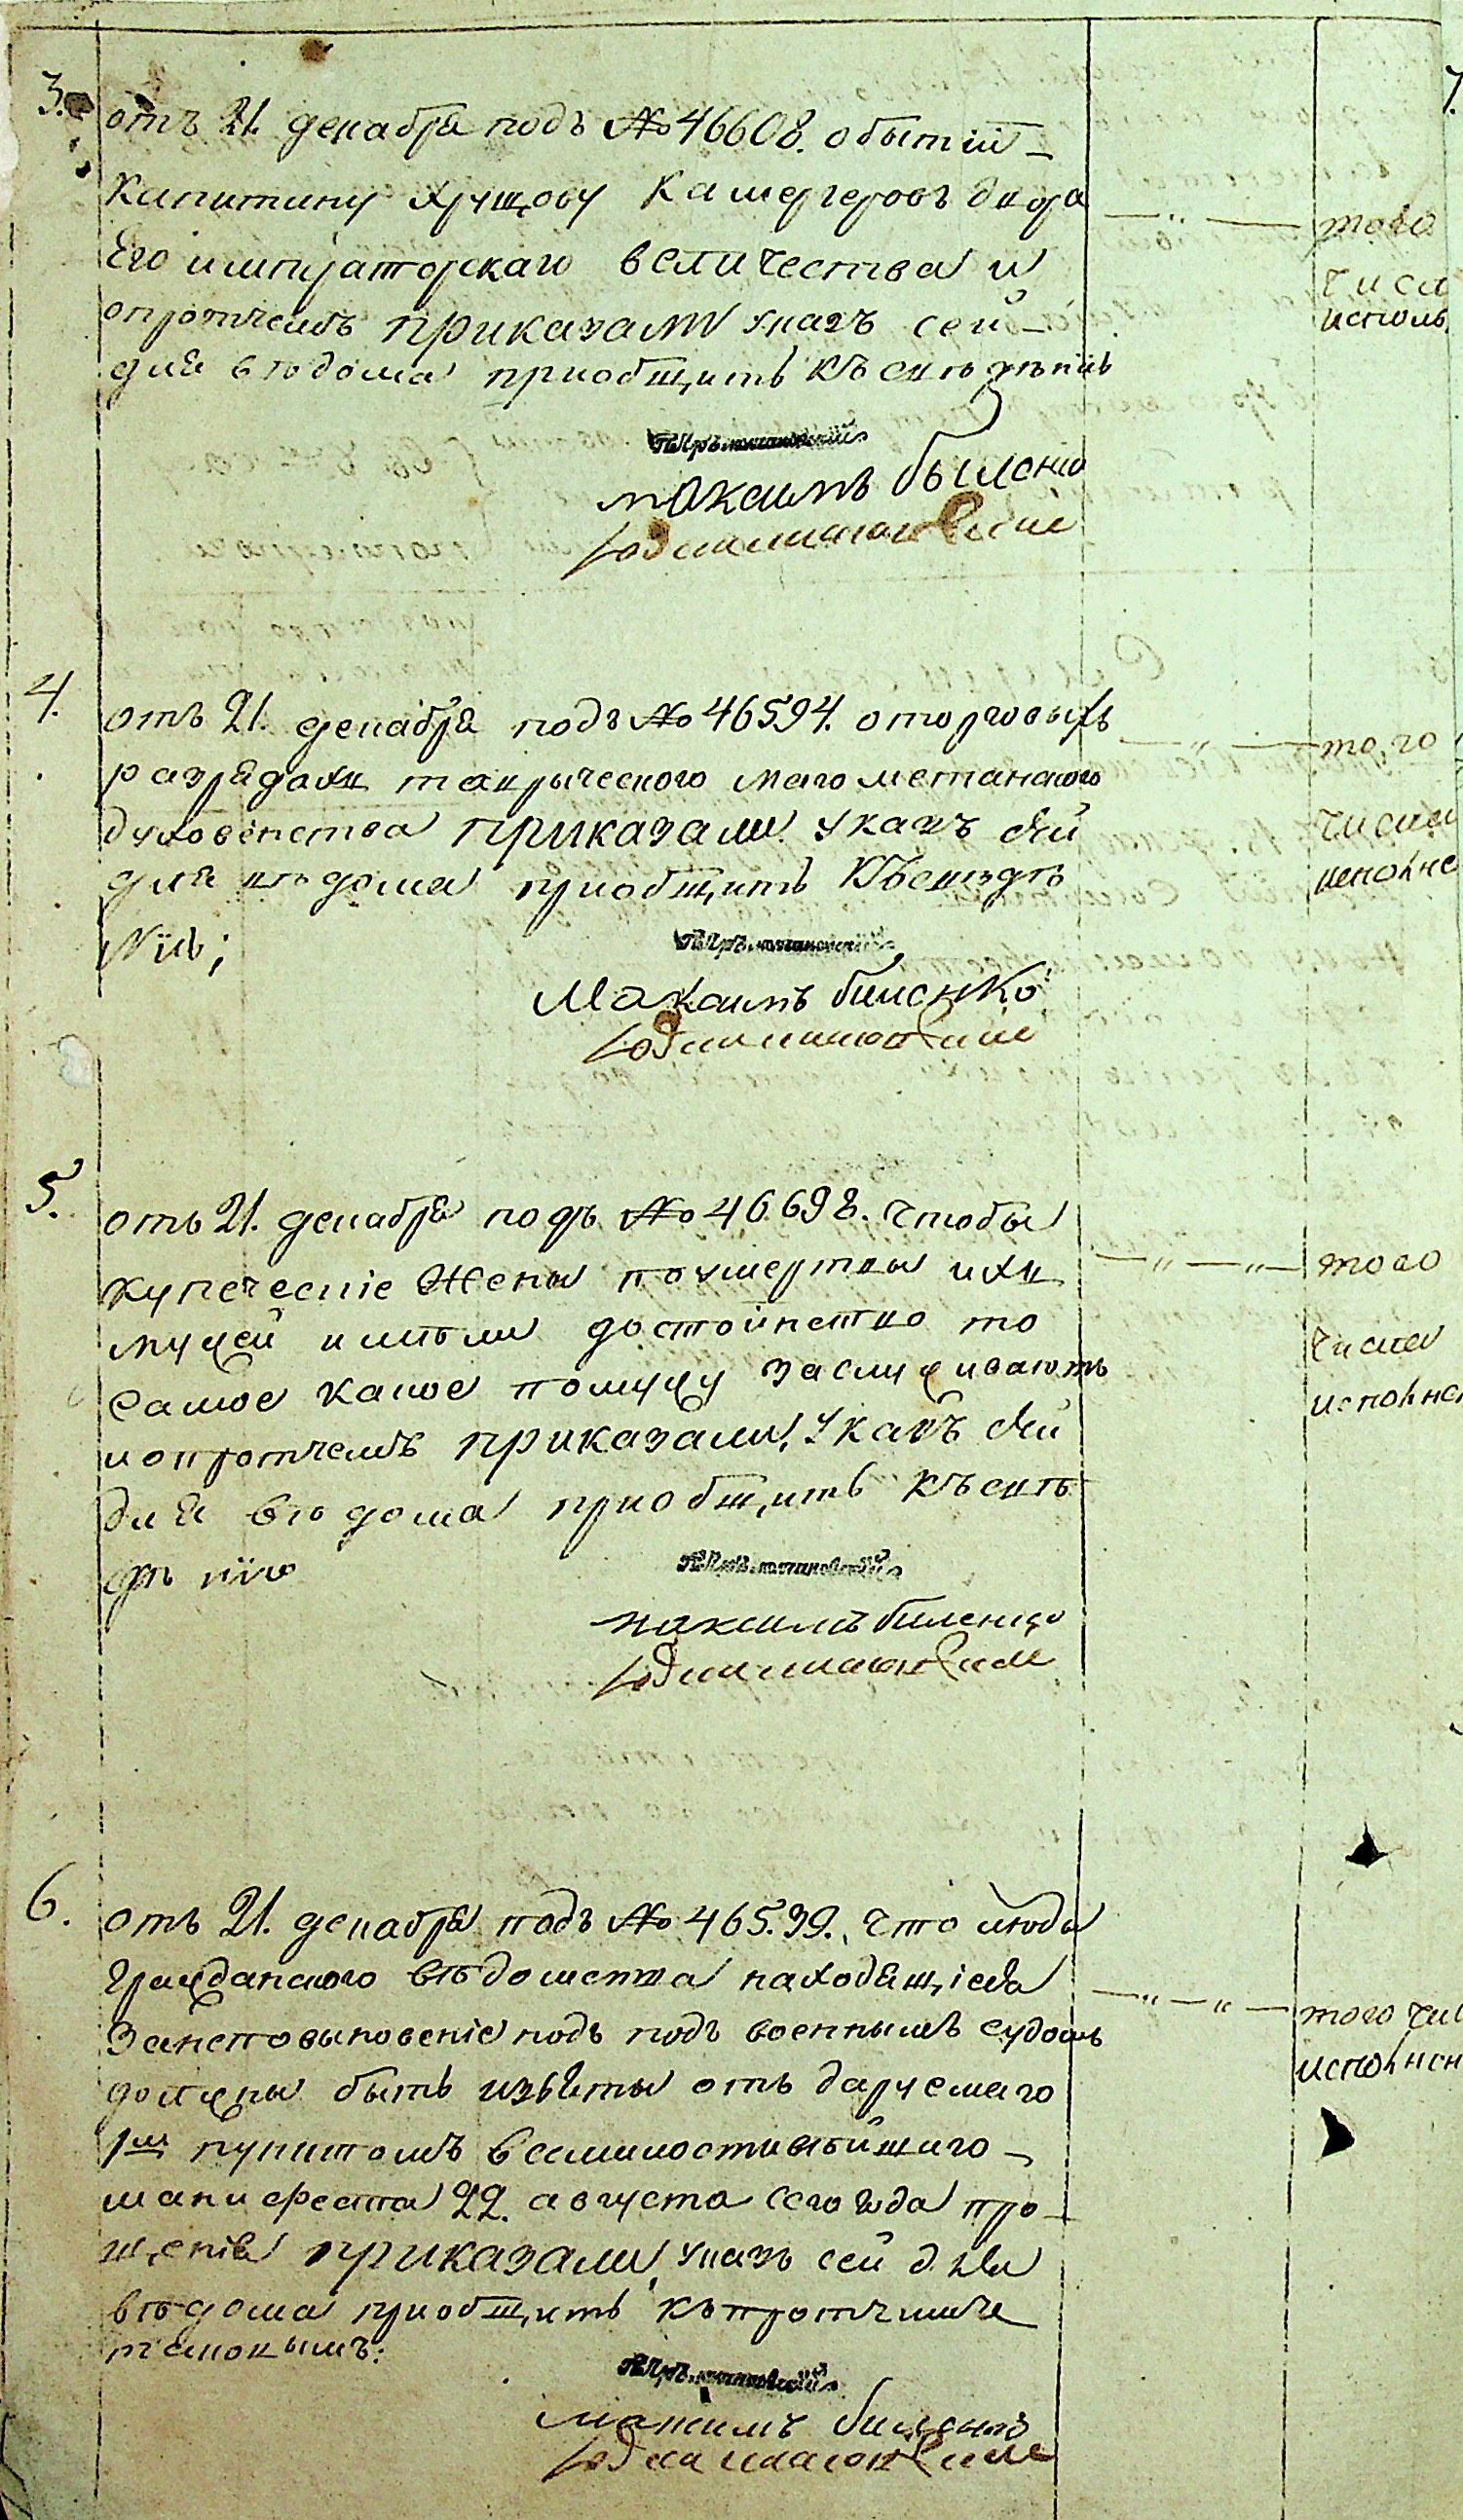 3.
отъ 21. декабря подъ № 46608. о бытіи
капитану Хрущову Камергеровъ двора
Его императорскаго величества и
опротчемъ приказали указъ сей
для въдома приобщить къ свъденію
Максимъ Биленко
того
числ
исполн
4.
отъ 21. декабря подъ № 46594. о торговыхъ
разрядахъ таврыческого магометанского
духовенства приказали указъ сей
для въдома приобщить къ свъдъ
нию;
Максимъ Биленко
того
числа
исполне
5.
отъ 21. декабря подъ № 46698. чтобы
купеческіе жены по умертвы ихъ
мужей имъли достоинство то
самое какое по мужу заслуживаютъ
и опротчемъ приказали, указъ сей
для въдома приобщить къ свъ
дънію
Максимъ Биленко
того
числа
исполнен
6.
отъ 21. декабря подъ № 465.39. что люди
гражданского въдомства находящіеся
за неповыновеніе подъ подъ военнымъ судомъ
должны быть изъяты отъ даруемаго
1мъ пунктомъ всемилостивъйшаго
манифеста 22. августа сего года про
щенія приказали, указъ сей для
въдома приобщить къ протчимъ
таковымъ:
Максимъ Биленко
того чис
исполнен